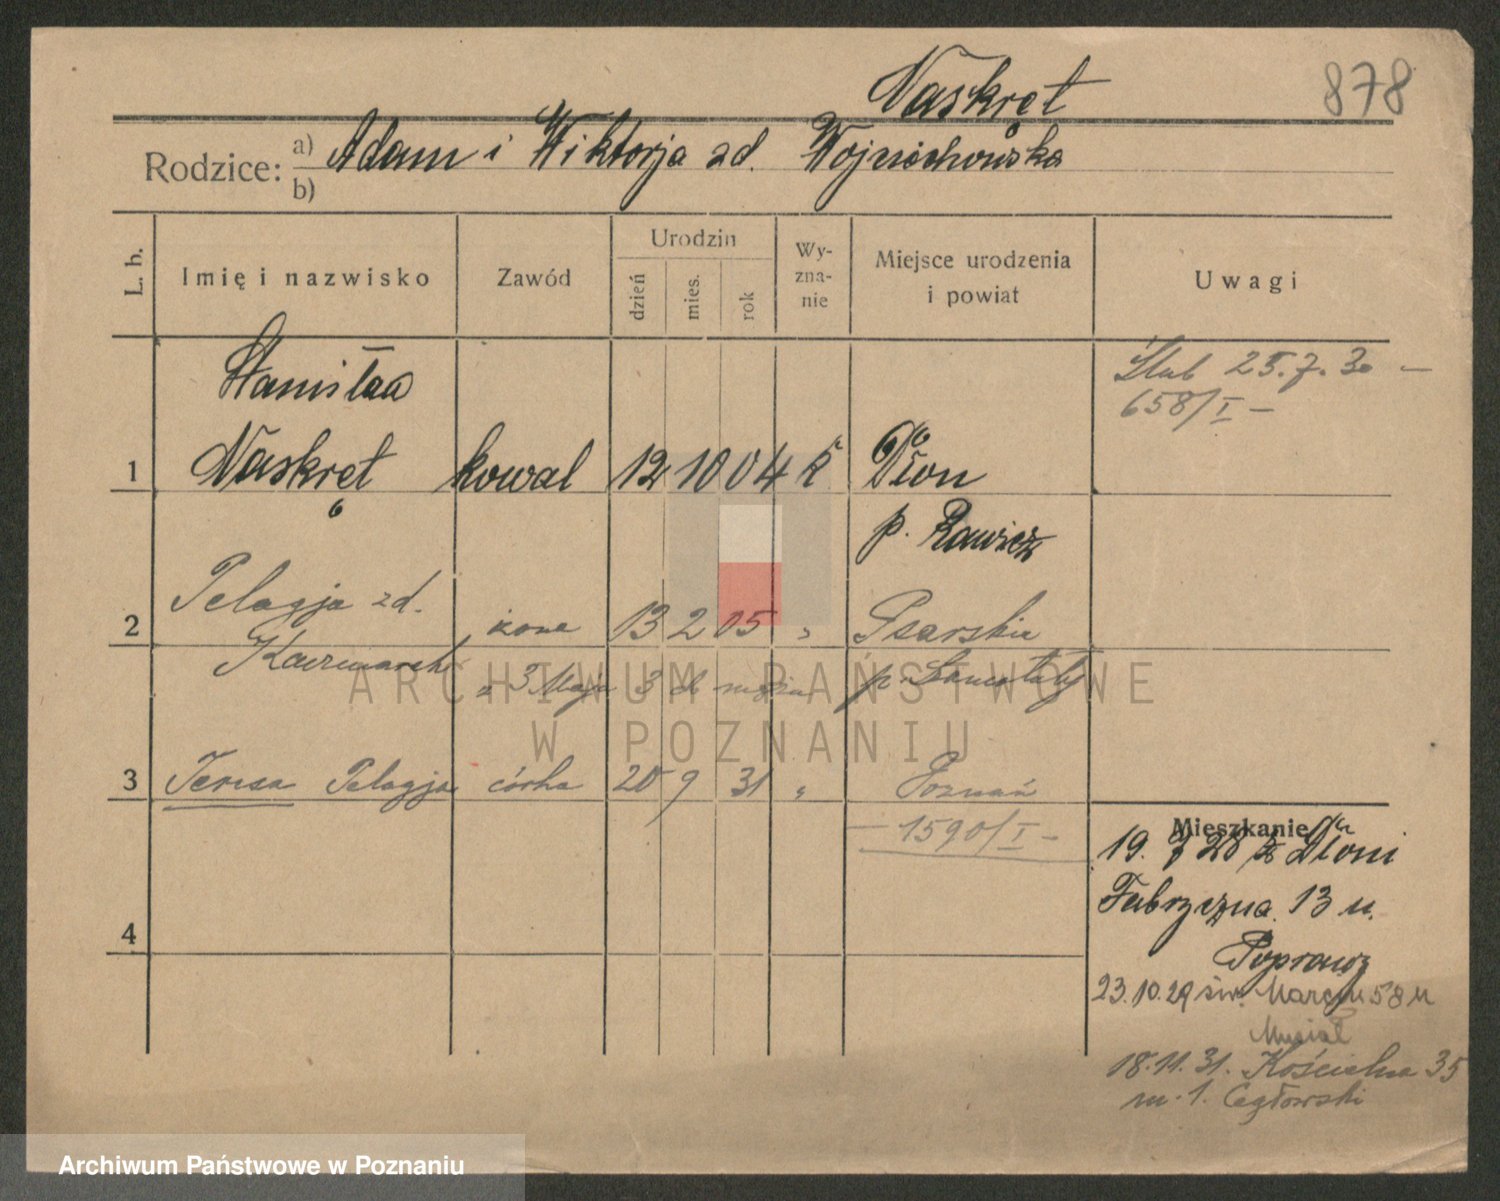 Naskręt
878
Rodzice: a) Adam i Wiktorja zd. Wojciechowska
b)
L. b.
Imię i nazwisko
Zawód
Urodzin
dzień
mies.
rok
Wy-
zna-
nie
Miejsce urodzenia
i powiat
Uwagi
Stanisław
Ślub 25.7.30 —
658/I —
1 Naskręt kowal 12 10 04 k Dłoń
p. Rawicz
2 Pelagja zd. żona 13 2 05 " Psarskie
Kaczmarek
z 3 Maja 3 do męża
p.
3 Teresa Pelagja córka 20 9 31 " Poznań
— 1590/I —
4
Mieszkanie
19. 7 28 z Dłoni
Fabryczna 13 u.
Poprawy
23.10.29 św. Marcin 58 u
Musiał
18.11.31. Kościelna 35
m. 1. Cegłowski
ARCHIWUM PAŃSTWOWE
W POZNANIU
Archiwum Państwowe w Poznaniu